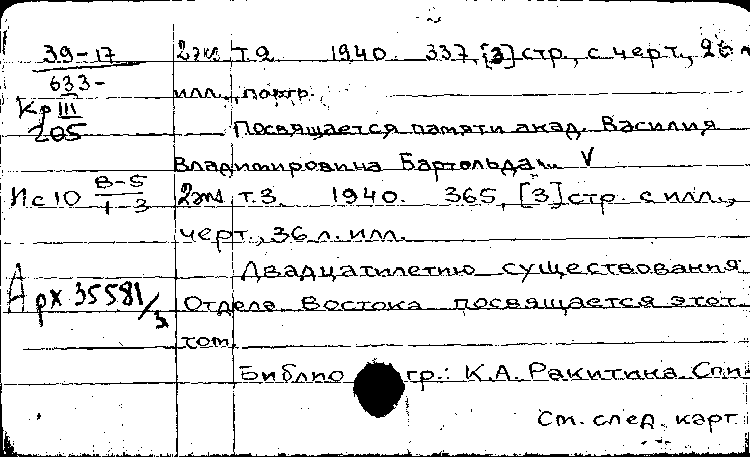 39-17 2экз т.2. 1940. 337, [3] стр., с черт., 26 л
633-
илл., портр.
Кр III
205
Посвящается памяти акад. Василия
Владимировича Бартольда
Ис 10 8-5 2экз т.3. 1940. 365, [3] стр. с илл.,
1-3
черт., 36 л. илл.
Двадцатилетию существования
Арх 35581/3 Отдела Востока посвящается этот
том
Библиогр.: К.А. Ракитина. Спи-
См. след. карт.